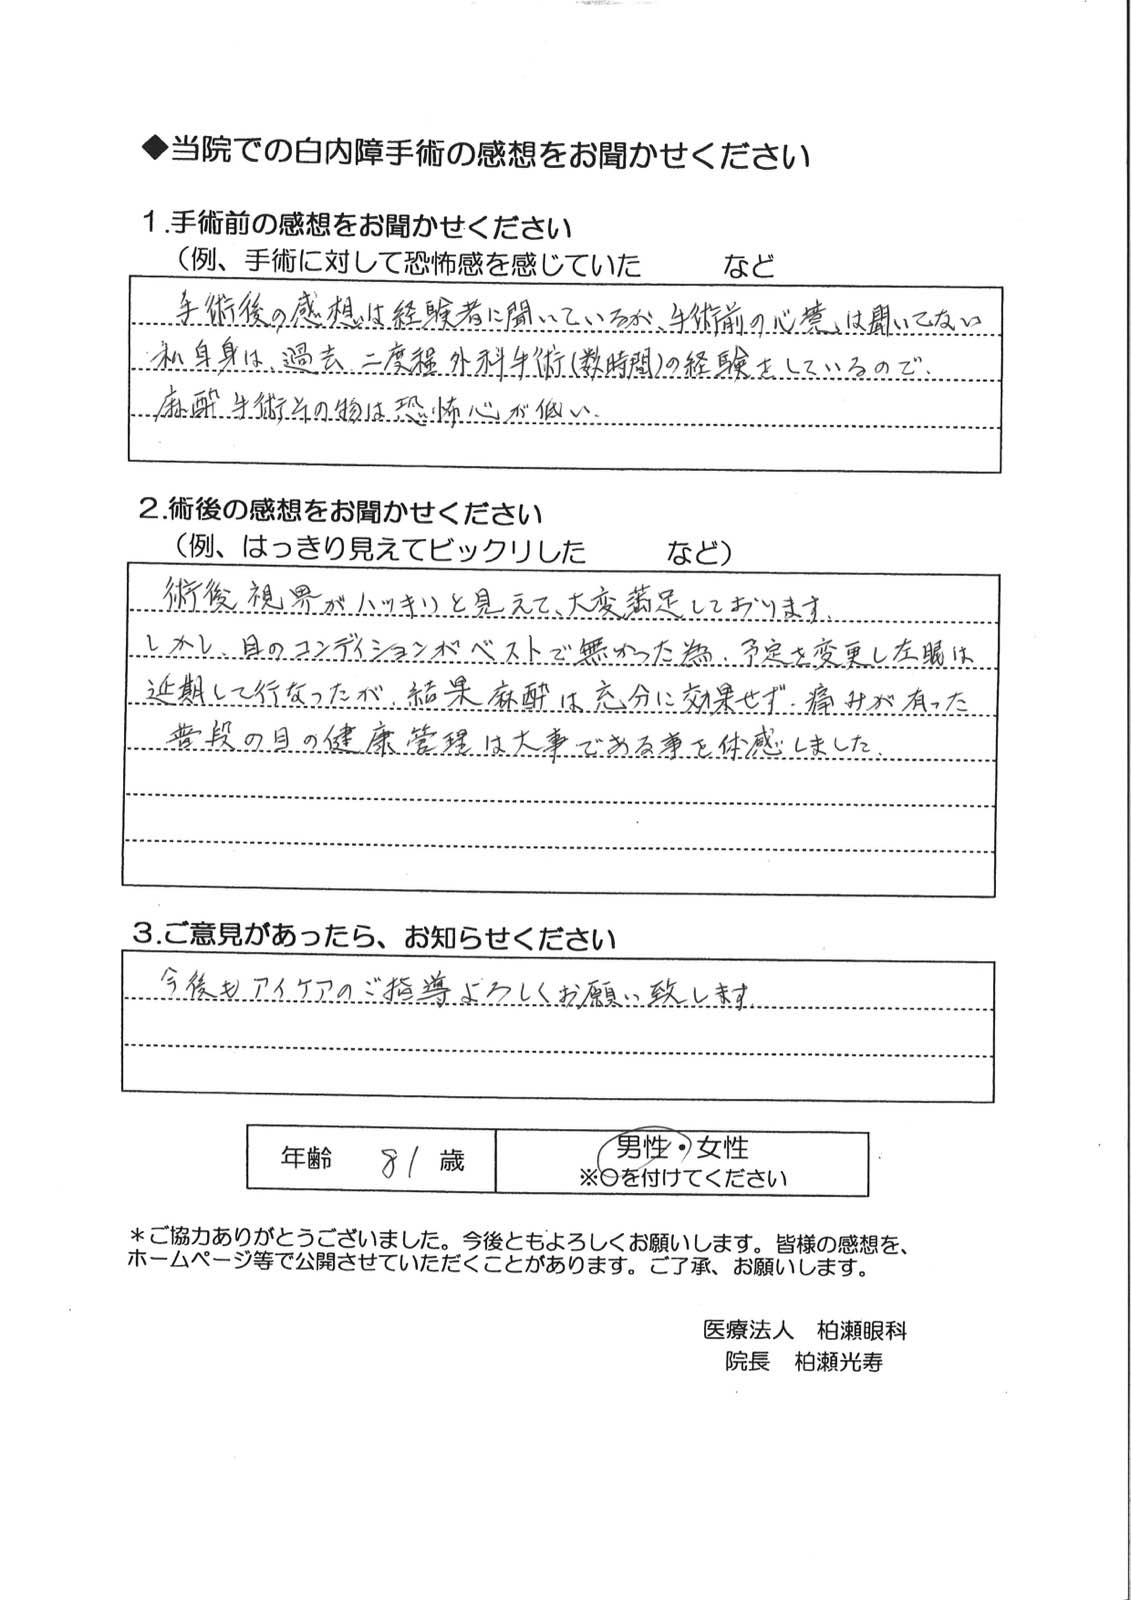 ◆当院での白内障手術の感想をお聞かせください
1.手術前の感想をお聞かせください
（例、手術に対して恐怖感を感じていた　　など
手術後の感想は経験者に聞いているが、手術前の心境は聞いてない
私自身は、過去 二度程 外科手術(数時間)の経験をしているので、
麻酔 手術その物は恐怖心が低い.
2.術後の感想をお聞かせください
（例、はっきり見えてビックリした　　など）
術後 視界がハッキリと見えて、大変満足しております.
しかし、目のコンディションがベストで無かった為、予定を変更し左眼は
延期して行なったが、結果 麻酔は充分に効果せず、痛みが有った
普段の目の健康管理は大事である事を体感しました.
3.ご意見があったら、お知らせください
今後もアイケアのご指導よろしくお願い致します
年齢 81 歳
男性・女性
※〇を付けてください
＊ご協力ありがとうございました。今後ともよろしくお願いします。皆様の感想を、
ホームページ等で公開させていただくことがあります。ご了承、お願いします。
医療法人　柏瀬眼科
院長　柏瀬光寿